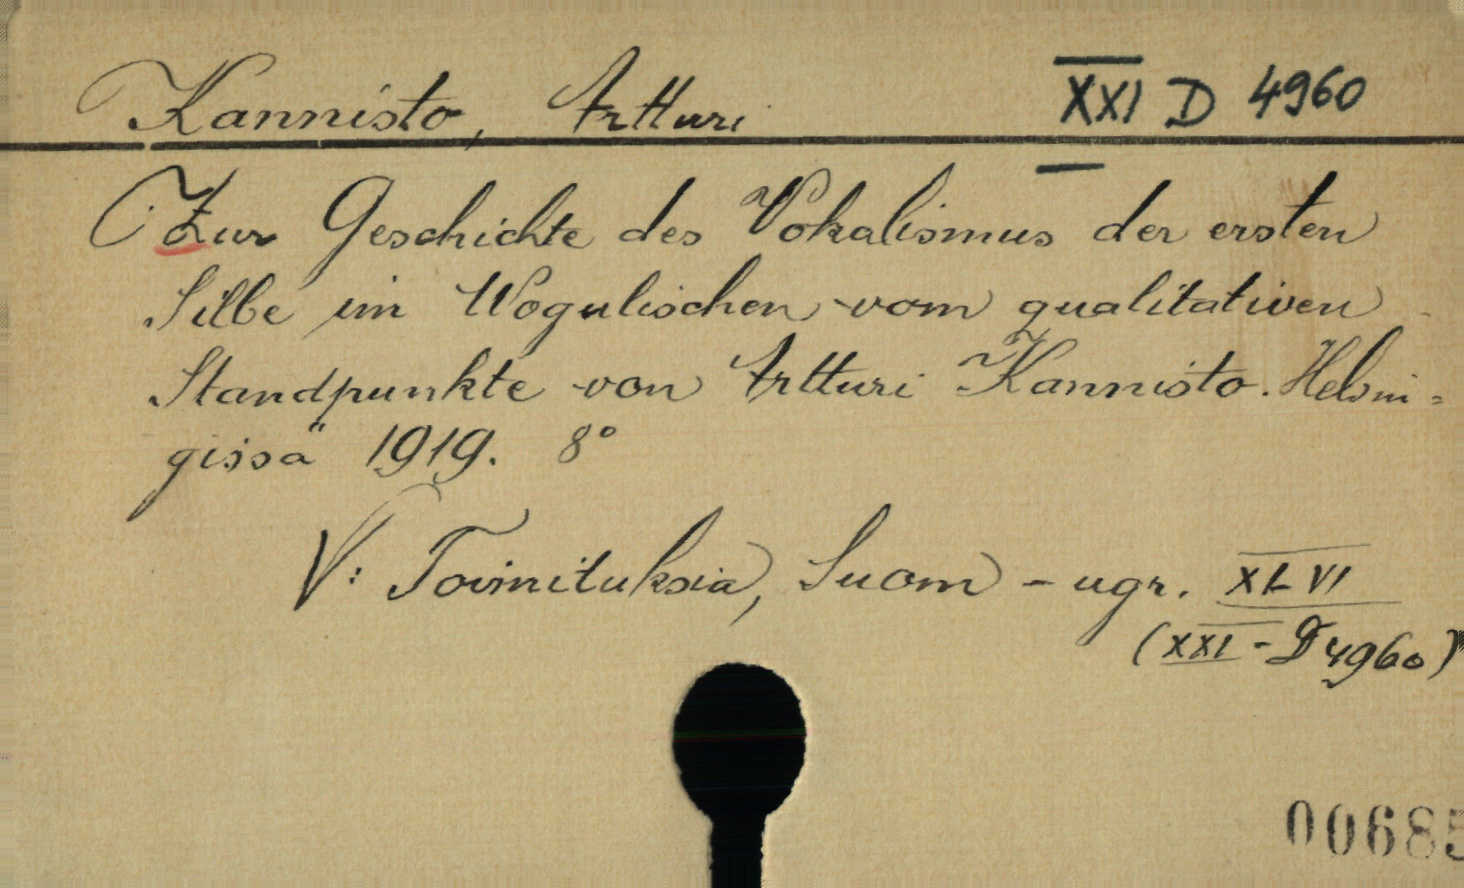 Kannisto, Artturi XXI D 4960
Zur Geschichte des Vokalismus der ersten
Silbe im Wogulischen vom qualitativen
Standpunkte von Artturi Kannisto. Helsin=
gissä 1919. 8°
V: Toimituksia, Suom-ugr. XLVI
(XXI-D 4960)
00685